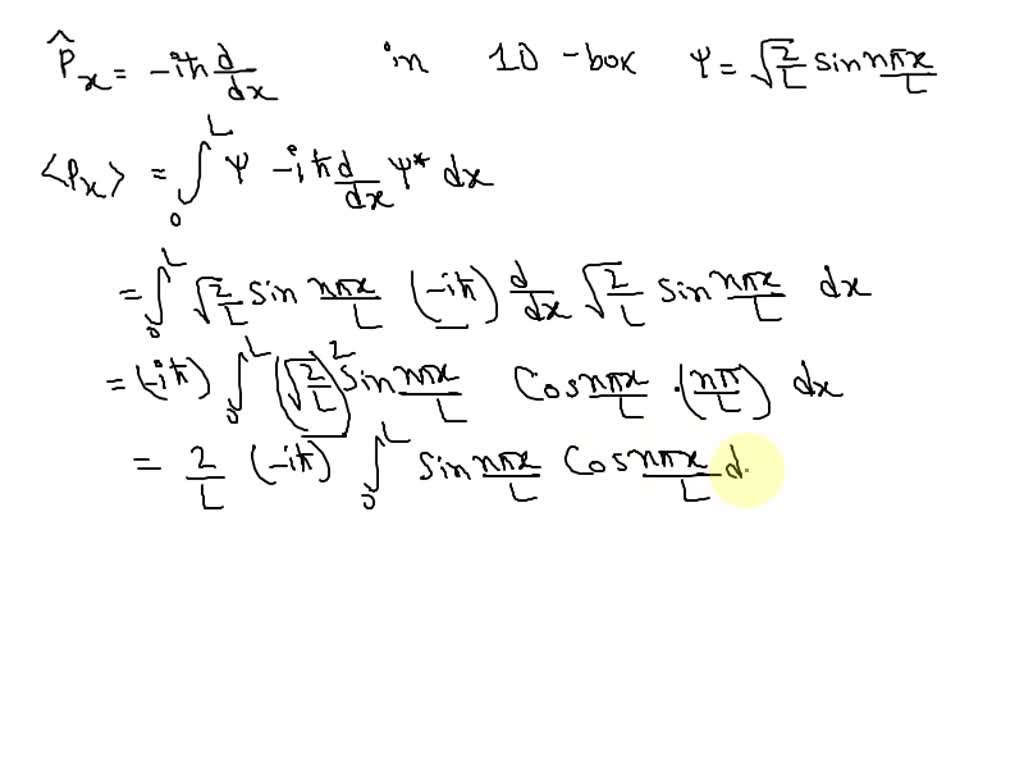 P̂ₓ = -iħ d/dx in 1D -box Ψ = √(2/L) sin nπx/L
⟨Pₓ⟩ = ∫₀ᴸ Ψ -iħ d/dx Ψ* dx
= ∫₀ᴸ √(2/L) sin nπx/L (-iħ) d/dx √(2/L) sin nπx/L dx
= (-iħ) ∫₀ᴸ (√(2/L))² sin nπx/L Cos nπx/L · (nπ/L) dx
= 2/L (-iħ) ∫₀ᴸ sin nπx/L Cos nπx/L d